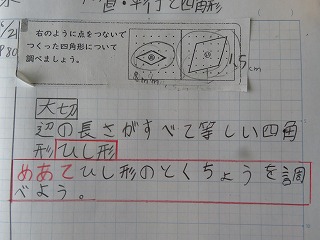 直・平行と四角形
6/21
P80
右のように点をつないで
つくった四角形について
調べましょう。
8mm
1.5cm
大切
辺の長さがすべて等しい四角
形ひし形
めあてひし形のとくちょうを調
べよう。